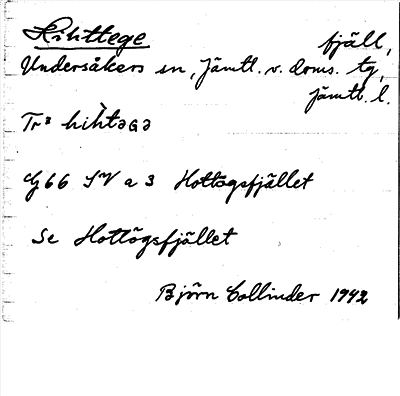 Hihttege fjäll,
Undersåkers sn, Jämtl. v. doms. tg,
Jämtl. l.
Tr: hìhtəGə
G66 SV a 3 Hottögsfjället
Se Hottögsfjället
Björn Collinder 1942